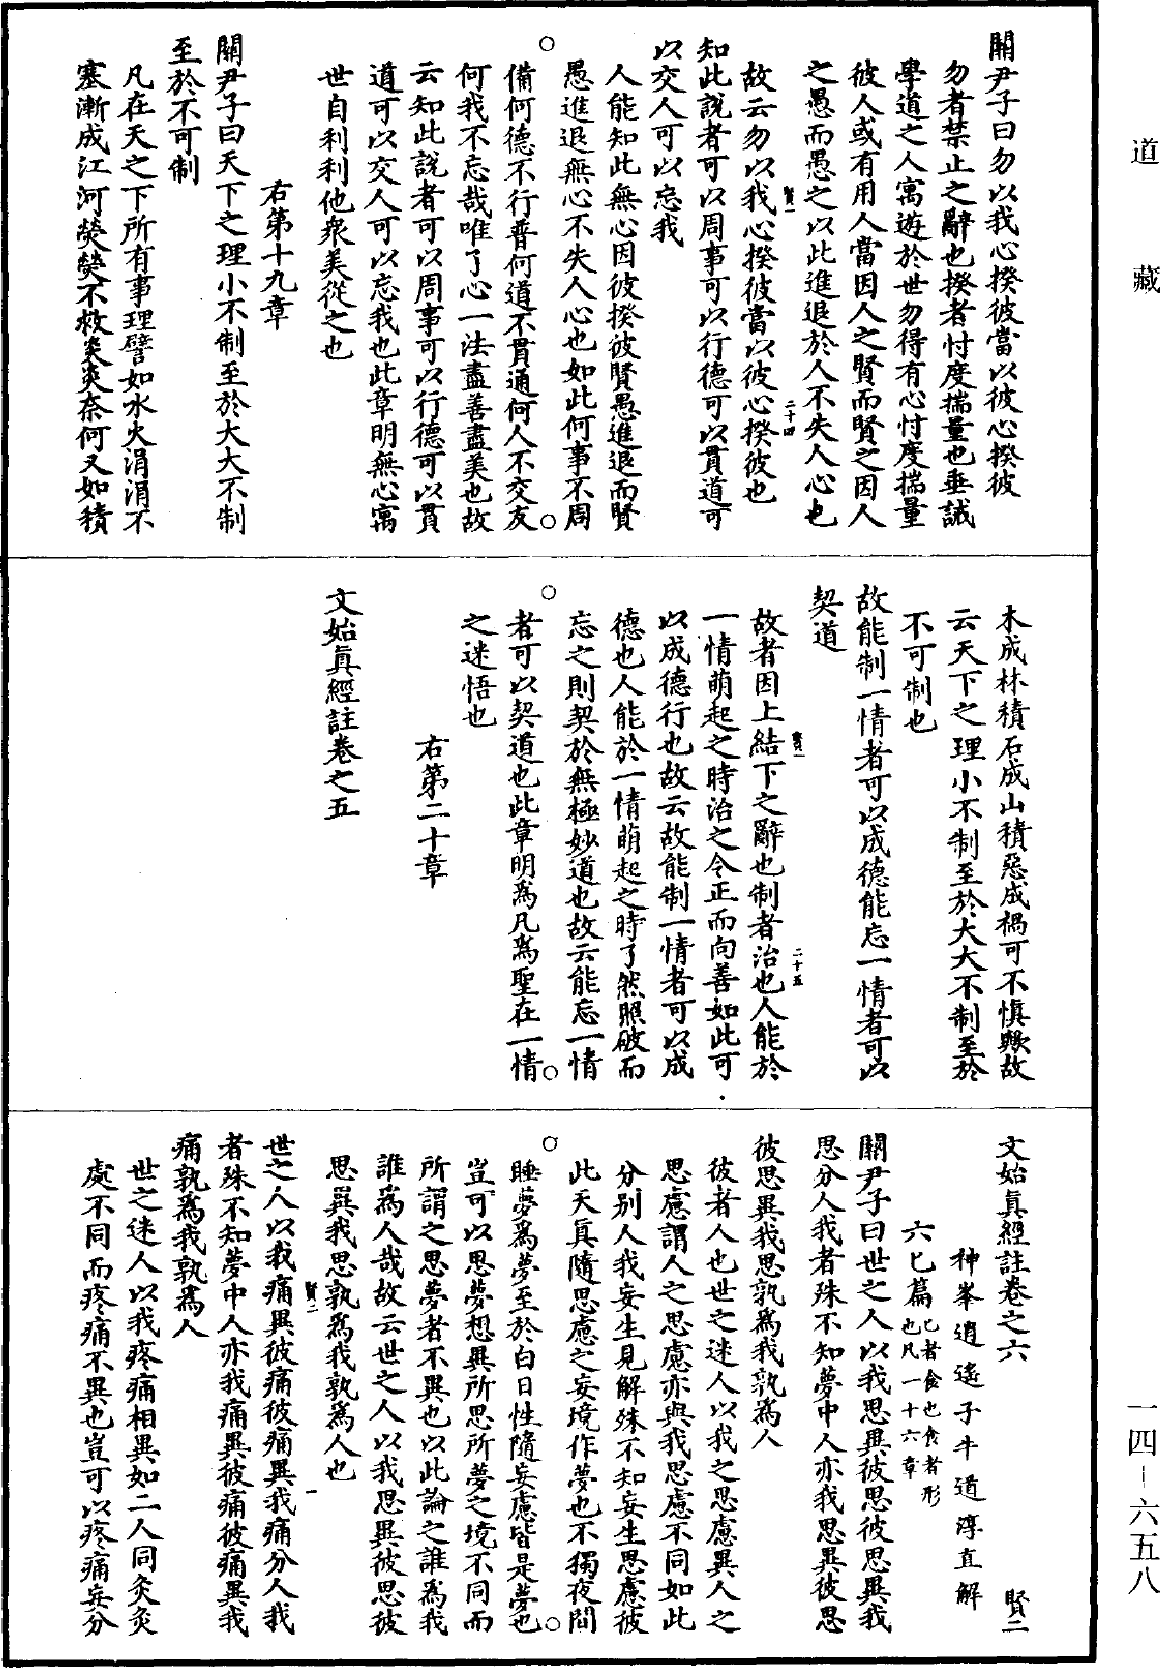 道藏
關尹子曰勿以我心揆彼當以彼心揆彼
勿者禁止之辭也揆者忖度揣量也垂誡
學道之人寓遊於世勿得有心忖度揣量
彼人或有用人當因人之賢而賢之因人
之愚而愚之以此進退於人不失人心也
故云勿以我心揆彼當以彼心揆彼也
賢一
二十四
知此說者可以周事可以行德可以貫道可
以交人可以忘我
人能知此無心因彼揆彼賢愚進退而賢
愚進退無心不失人心也如此何事不周
備何德不行普何道不貫通何人不交友
何我不忘哉唯了心一法盡善盡美也故
云知此說者可以周事可以行德可以貫
道可以交人可以忘我也此章明無心寓
世自利利他衆美從之也
右第十九章
關尹子曰天下之理小不制至於大大不制
至於不可制
凡在天之下所有事理譬如水火涓涓不
塞漸成江河熒熒不救炎炎奈何又如積
木成林積石成山積惡成禍可不愼歟故
云天下之理小不制至於大大不制至於
不可制也
故能制一情者可以成德能忘一情者可以
契道
故者因上結下之辭也制者治也人能於
賢一
二十五
一情萌起之時治之令正而向善如此可
以成德行也故云故能制一情者可以成
德也人能於一情萌起之時了然照破而
忘之則契於無極妙道也故云能忘一情
者可以契道也此章明爲凡爲聖在一情
之迷悟也
右第二十章
文始眞經註卷之五
文始眞經註卷之六
賢二
神峯逍遙子牛道淳直解
六匕篇
匕者食也食者形
也凡一十六章
關尹子曰世之人以我思異彼思彼思異我
思分人我者殊不知夢中人亦我思異彼思
彼思異我思孰爲我孰爲人
彼者人也世之迷人以我之思慮異人之
思慮謂人之思慮亦與我思慮不同如此
分別人我妄生見解殊不知妄生思慮彼
此天真隨思慮之妄境作夢也不獨夜間
睡夢爲夢至於白日性隨妄慮皆是夢也
豈可以思夢想異所思所夢之境不同而
所謂之思夢者不異也以此論之誰爲我
誰爲人哉故云世之人以我思異彼思彼
思異我思孰爲我孰爲人也
賢二
一
世之人以我痛異彼痛彼痛異我痛分人我
者殊不知夢中人亦我痛異彼痛彼痛異我
痛孰爲我孰爲人
世之迷人以我疼痛相異如二人同灸灸
處不同而疼痛不異也豈可以疼痛妄分
一四–六五八